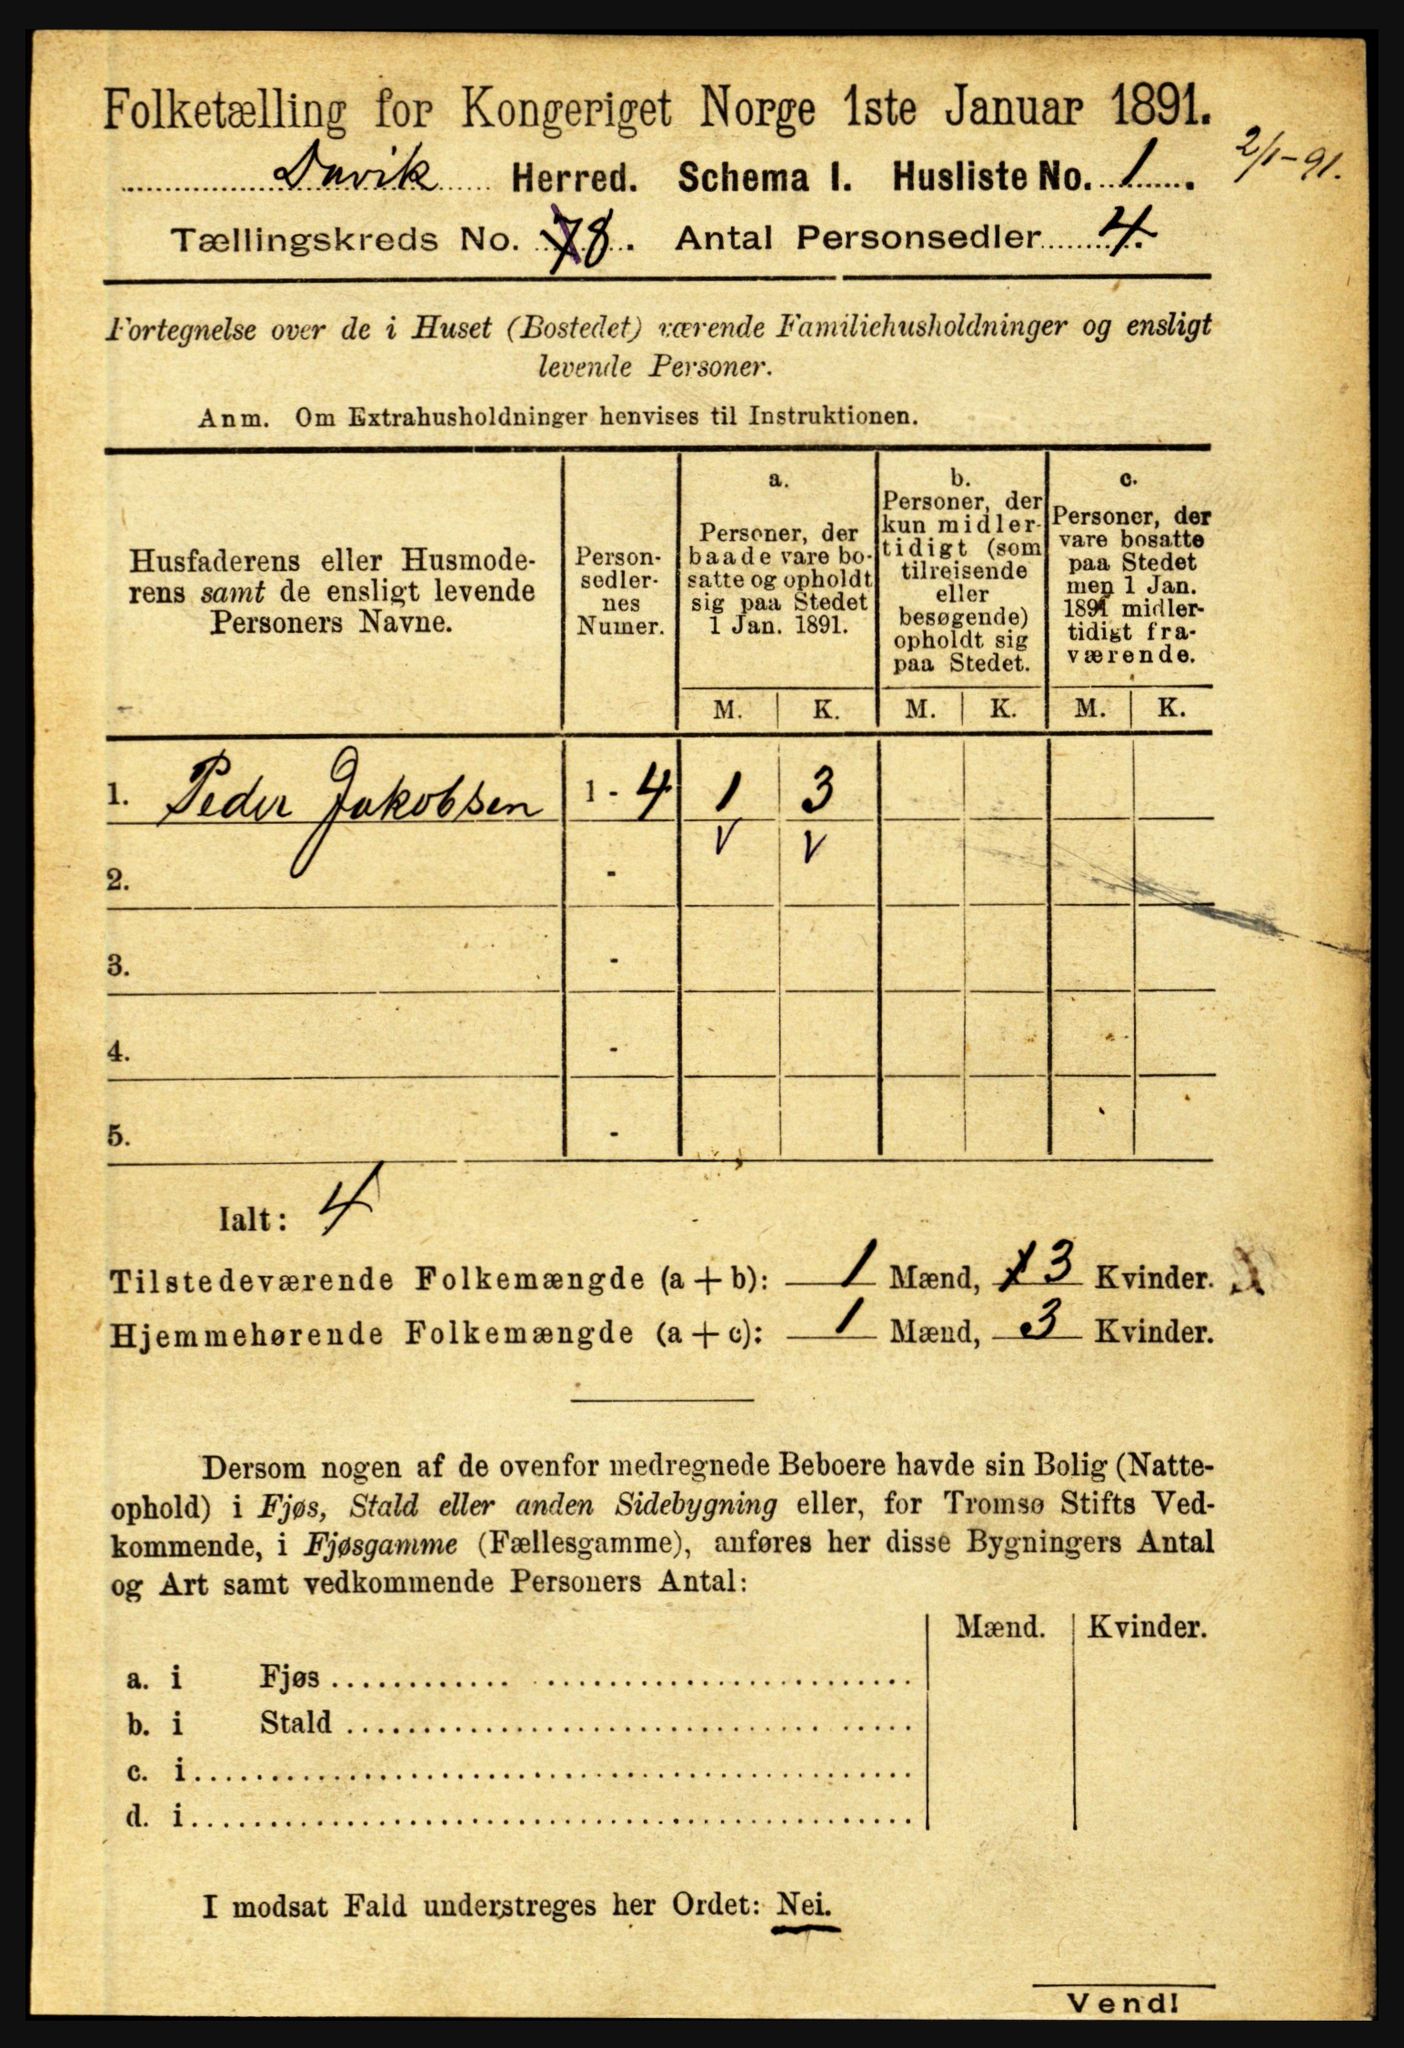 Folketælling for Kongeriget Norge 1ste Januar 1891.
2/1-91.
Davik Herred. Schema I. Husliste No. 1.
Tællingskreds No. 7 8. Antal Personsedler 4.
Fortegnelse over de i Huset (Bostedet) værende Familiehusholdninger og ensligt
levende Personer.
Anm. Om Extrahusholdninger henvises til Instruktionen.
Husfaderens eller Husmode-
rens samt de ensligt levende
Personers Navne.
Person-
sedler-
nes
Numer.
a.
Personer, der
baade vare bo-
satte og opholdt
sig paa Stedet
1 Jan. 1891.
b.
Personer, der
kun midler-
tidigt (som
tilreisende
eller
besøgende)
opholdt sig
paa Stedet.
c.
Personer, der
vare bosatte
paa Stedet
men 1 Jan.
1891 midler-
tidigt fra-
værende.
M. K. M. K. M. K.
1. Peder Jakobsen 1 - 4 1 3
V V
2. -
3. -
4. -
5. -
Ialt: 4
Tilstedeværende Folkemængde (a + b): 1 Mænd, 1 3 Kvinder.
Hjemmehørende Folkemængde (a + c): 1 Mænd, 3 Kvinder.
Dersom nogen af de ovenfor medregnede Beboere havde sin Bolig (Natte-
ophold) i Fjøs, Stald eller anden Sidebygning eller, for Tromsø Stifts Ved-
kommende, i Fjøsgamme (Fællesgamme), anføres her disse Bygningers Antal
og Art samt vedkommende Personers Antal:
Mænd. Kvinder.
a. i Fjøs
b. i Stald
c. i
d. i
I modsat Fald understreges her Ordet: Nei.
Vend!